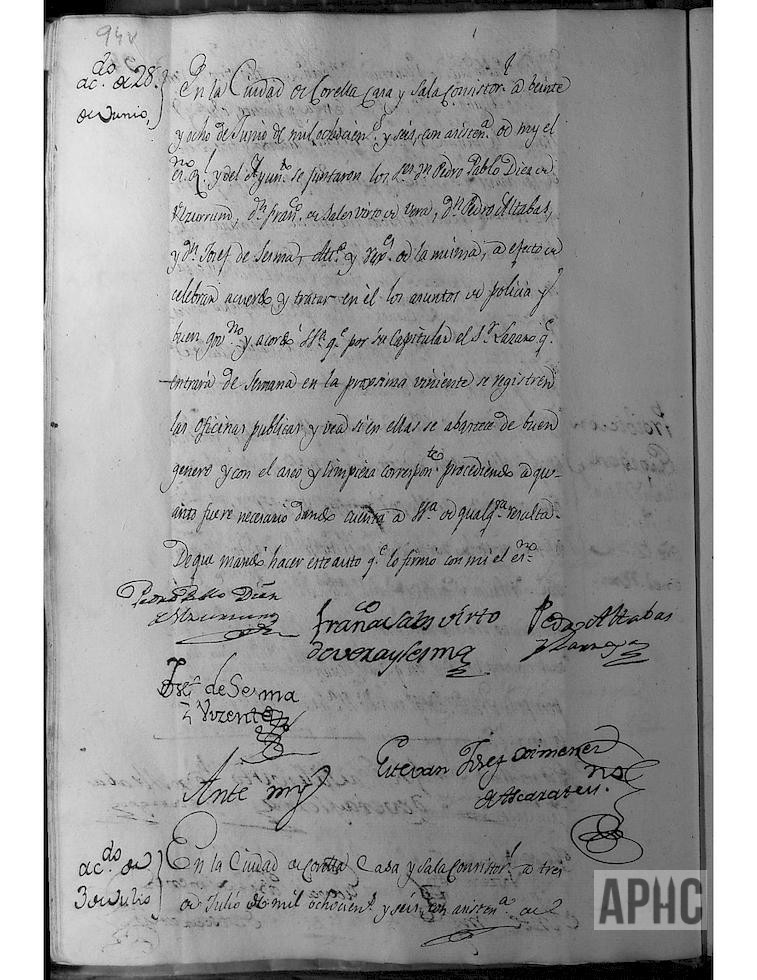 94v
ac.do de 28
de Junio,
En la Ciudad de Corella Casa y Sala Consistor.l a veinte
y ocho de Junio de mil ochocien.s y seis, con asisten.a de my el
es.no R.l y del Ayun.to se juntaron los S.res D.n Pedro Pablo Diez de
Ulzurrun, D.n Fran.co de Sales Virto de Vera, D.n Pedro Altabas,
y D.n Josef de Sesma, Alc.e y Rex.s de la misma, a efecto de
celebrar acuerdo y tratar en él los asuntos de policia y
buen gov.no y acordó S.Sª q.e por su Capitular el S.r Lazaro q.e
entrará de Semana en la proxsima viniente se registren
las oficinas publicas y vea si en ellas se abastece de buen
genero y con el aseo y limpieza correspon.te procediendo a qu-
anto fuere necesario dando cuenta a S.Sª de qualq.ra resulta-
De que mandó hacer este auto q.e lo firmó con mi el es.no
Pedro Pablo Diez
de Ulzurrun
Fran.co de Sales Virto
de Vera y Sesma
Pedro Altabas
Josef de Sesma
y Vicente
Ante my
Estevan Josef Ximenez
de Ascarate es.no
ac.do de
3 de Julio
En la Ciudad de Corella Casa y Sala Consistor.l a tres
de Julio de mil ochocien.s y seis, con asisten.a de
APHC